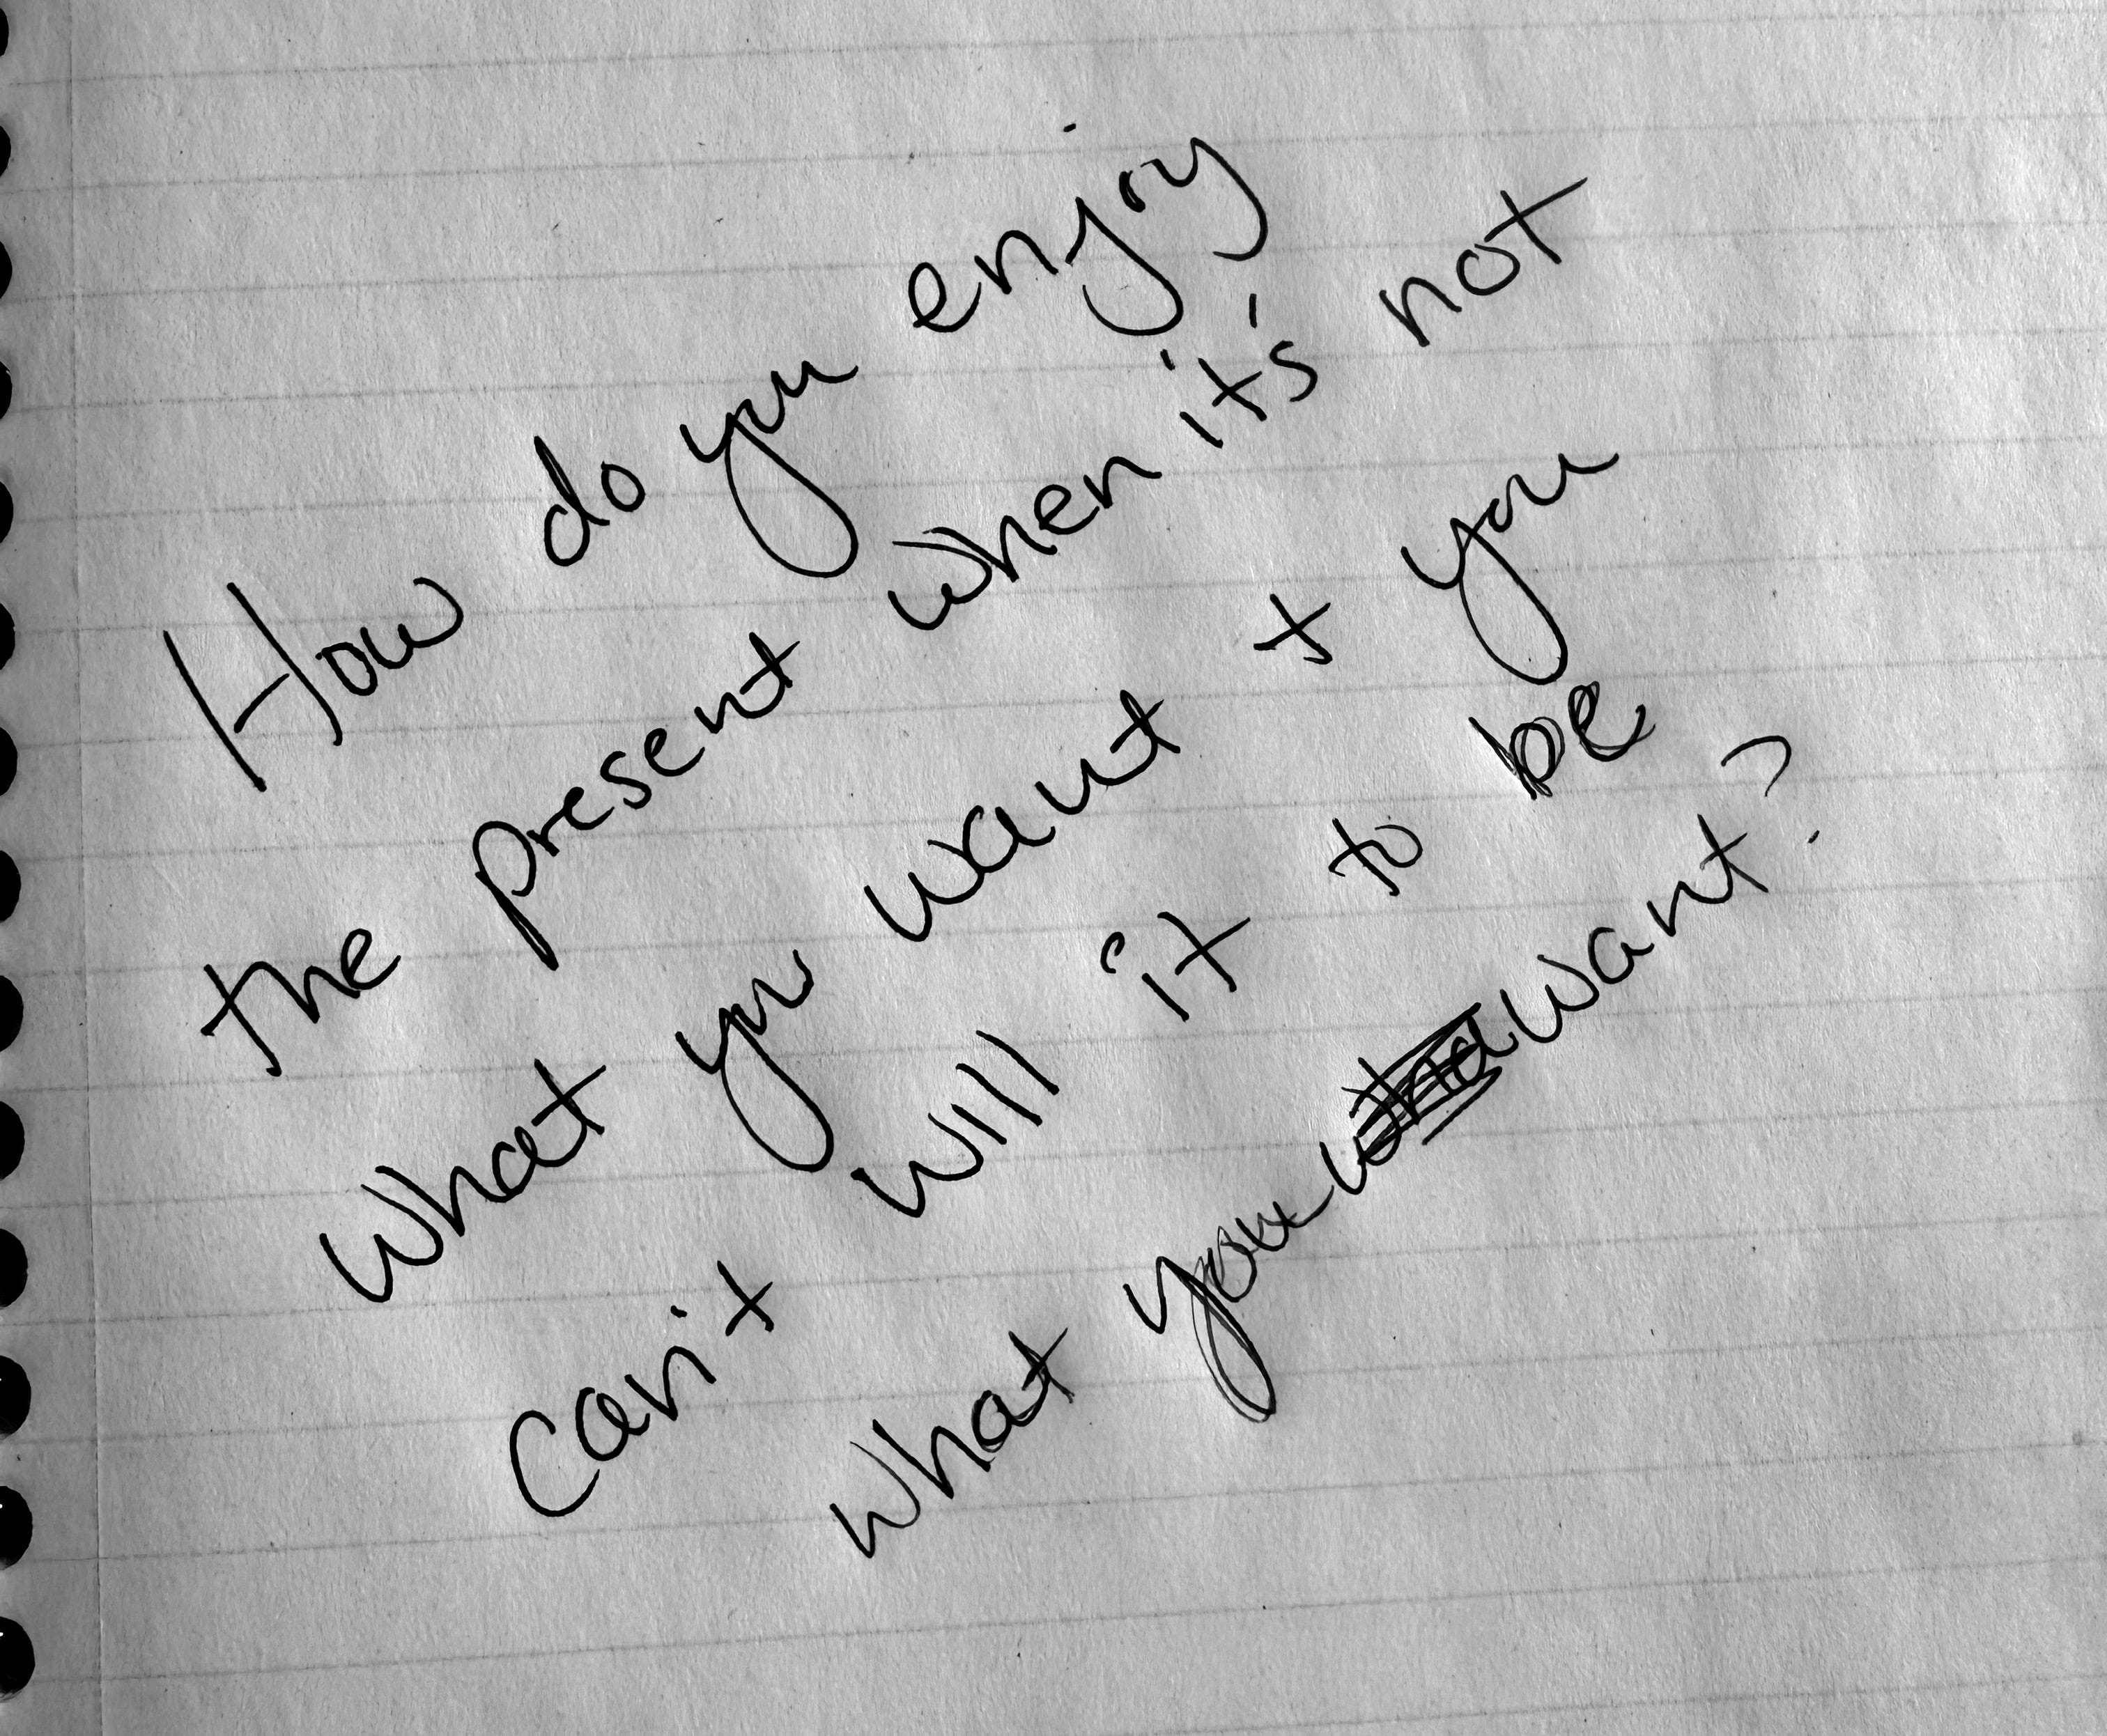 How do you enjoy
the present when it's not
what you want + you
can't will it to be
what you want?